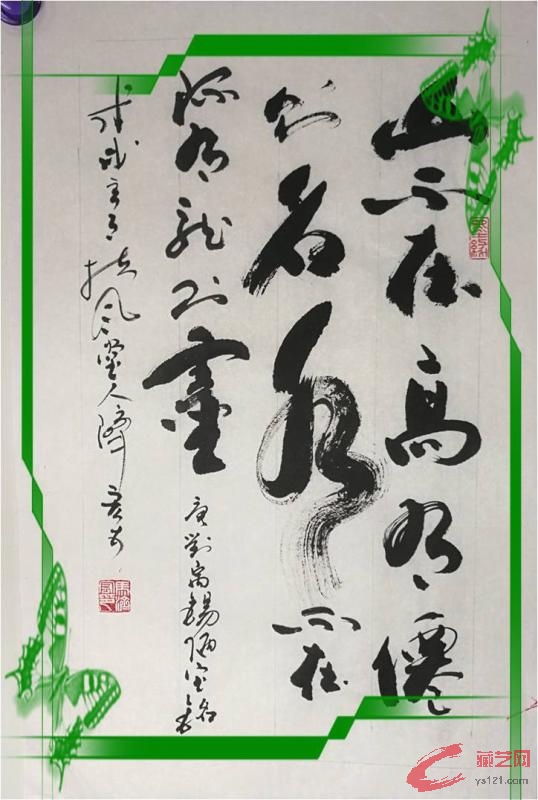 山不在高有僊
则名水不在
深有龍则靈
唐劉禹錫陋室銘
戊戌
扶風堂人
藏艺网
ys121.com